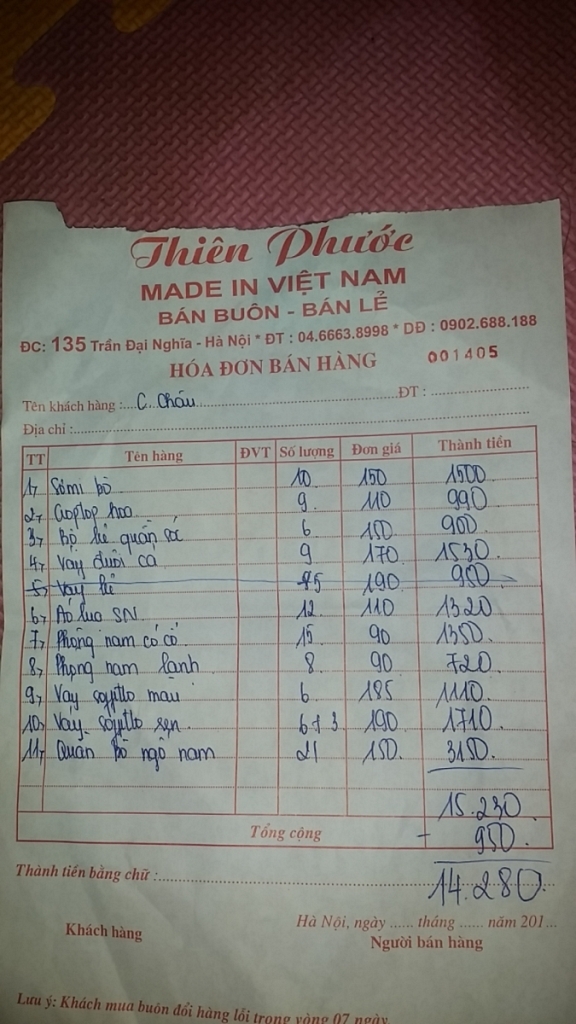 Thiên Phước
MADE IN VIỆT NAM
BÁN BUÔN - BÁN LẺ
ĐC: 135 Trần Đại Nghĩa - Hà Nội * ĐT : 04.6663.8998 * DĐ : 0902.688.188
HÓA ĐƠN BÁN HÀNG 001405
Tên khách hàng : C. Châu ĐT :
Địa chỉ :
TT Tên hàng ĐVT Số lượng Đơn giá Thành tiền
1, Sơmi bò 10 150 1500
2, hoa 9 110 990
3, Bộ hè quần sóc 6 150 900
4, Váy đuôi cá 9 170 1530
5, Váy hè 5 190 950
6, Áo lụa SN 12 110 1320
7, Phông nam có cổ 15 90 1350
8, Phông nam lạnh 8 90 720
9, Váy màu 6 185 1110
10, Váy 6+3 190 1710
11, Quần bò ngố nam 21 150 3150
15.230
Tổng cộng - 950
Thành tiền bằng chữ : 14.280
Hà Nội, ngày ...... tháng ...... năm 201...
Khách hàng Người bán hàng
Lưu ý: Khách mua buôn đổi hàng lỗi trong vòng 07 ngày